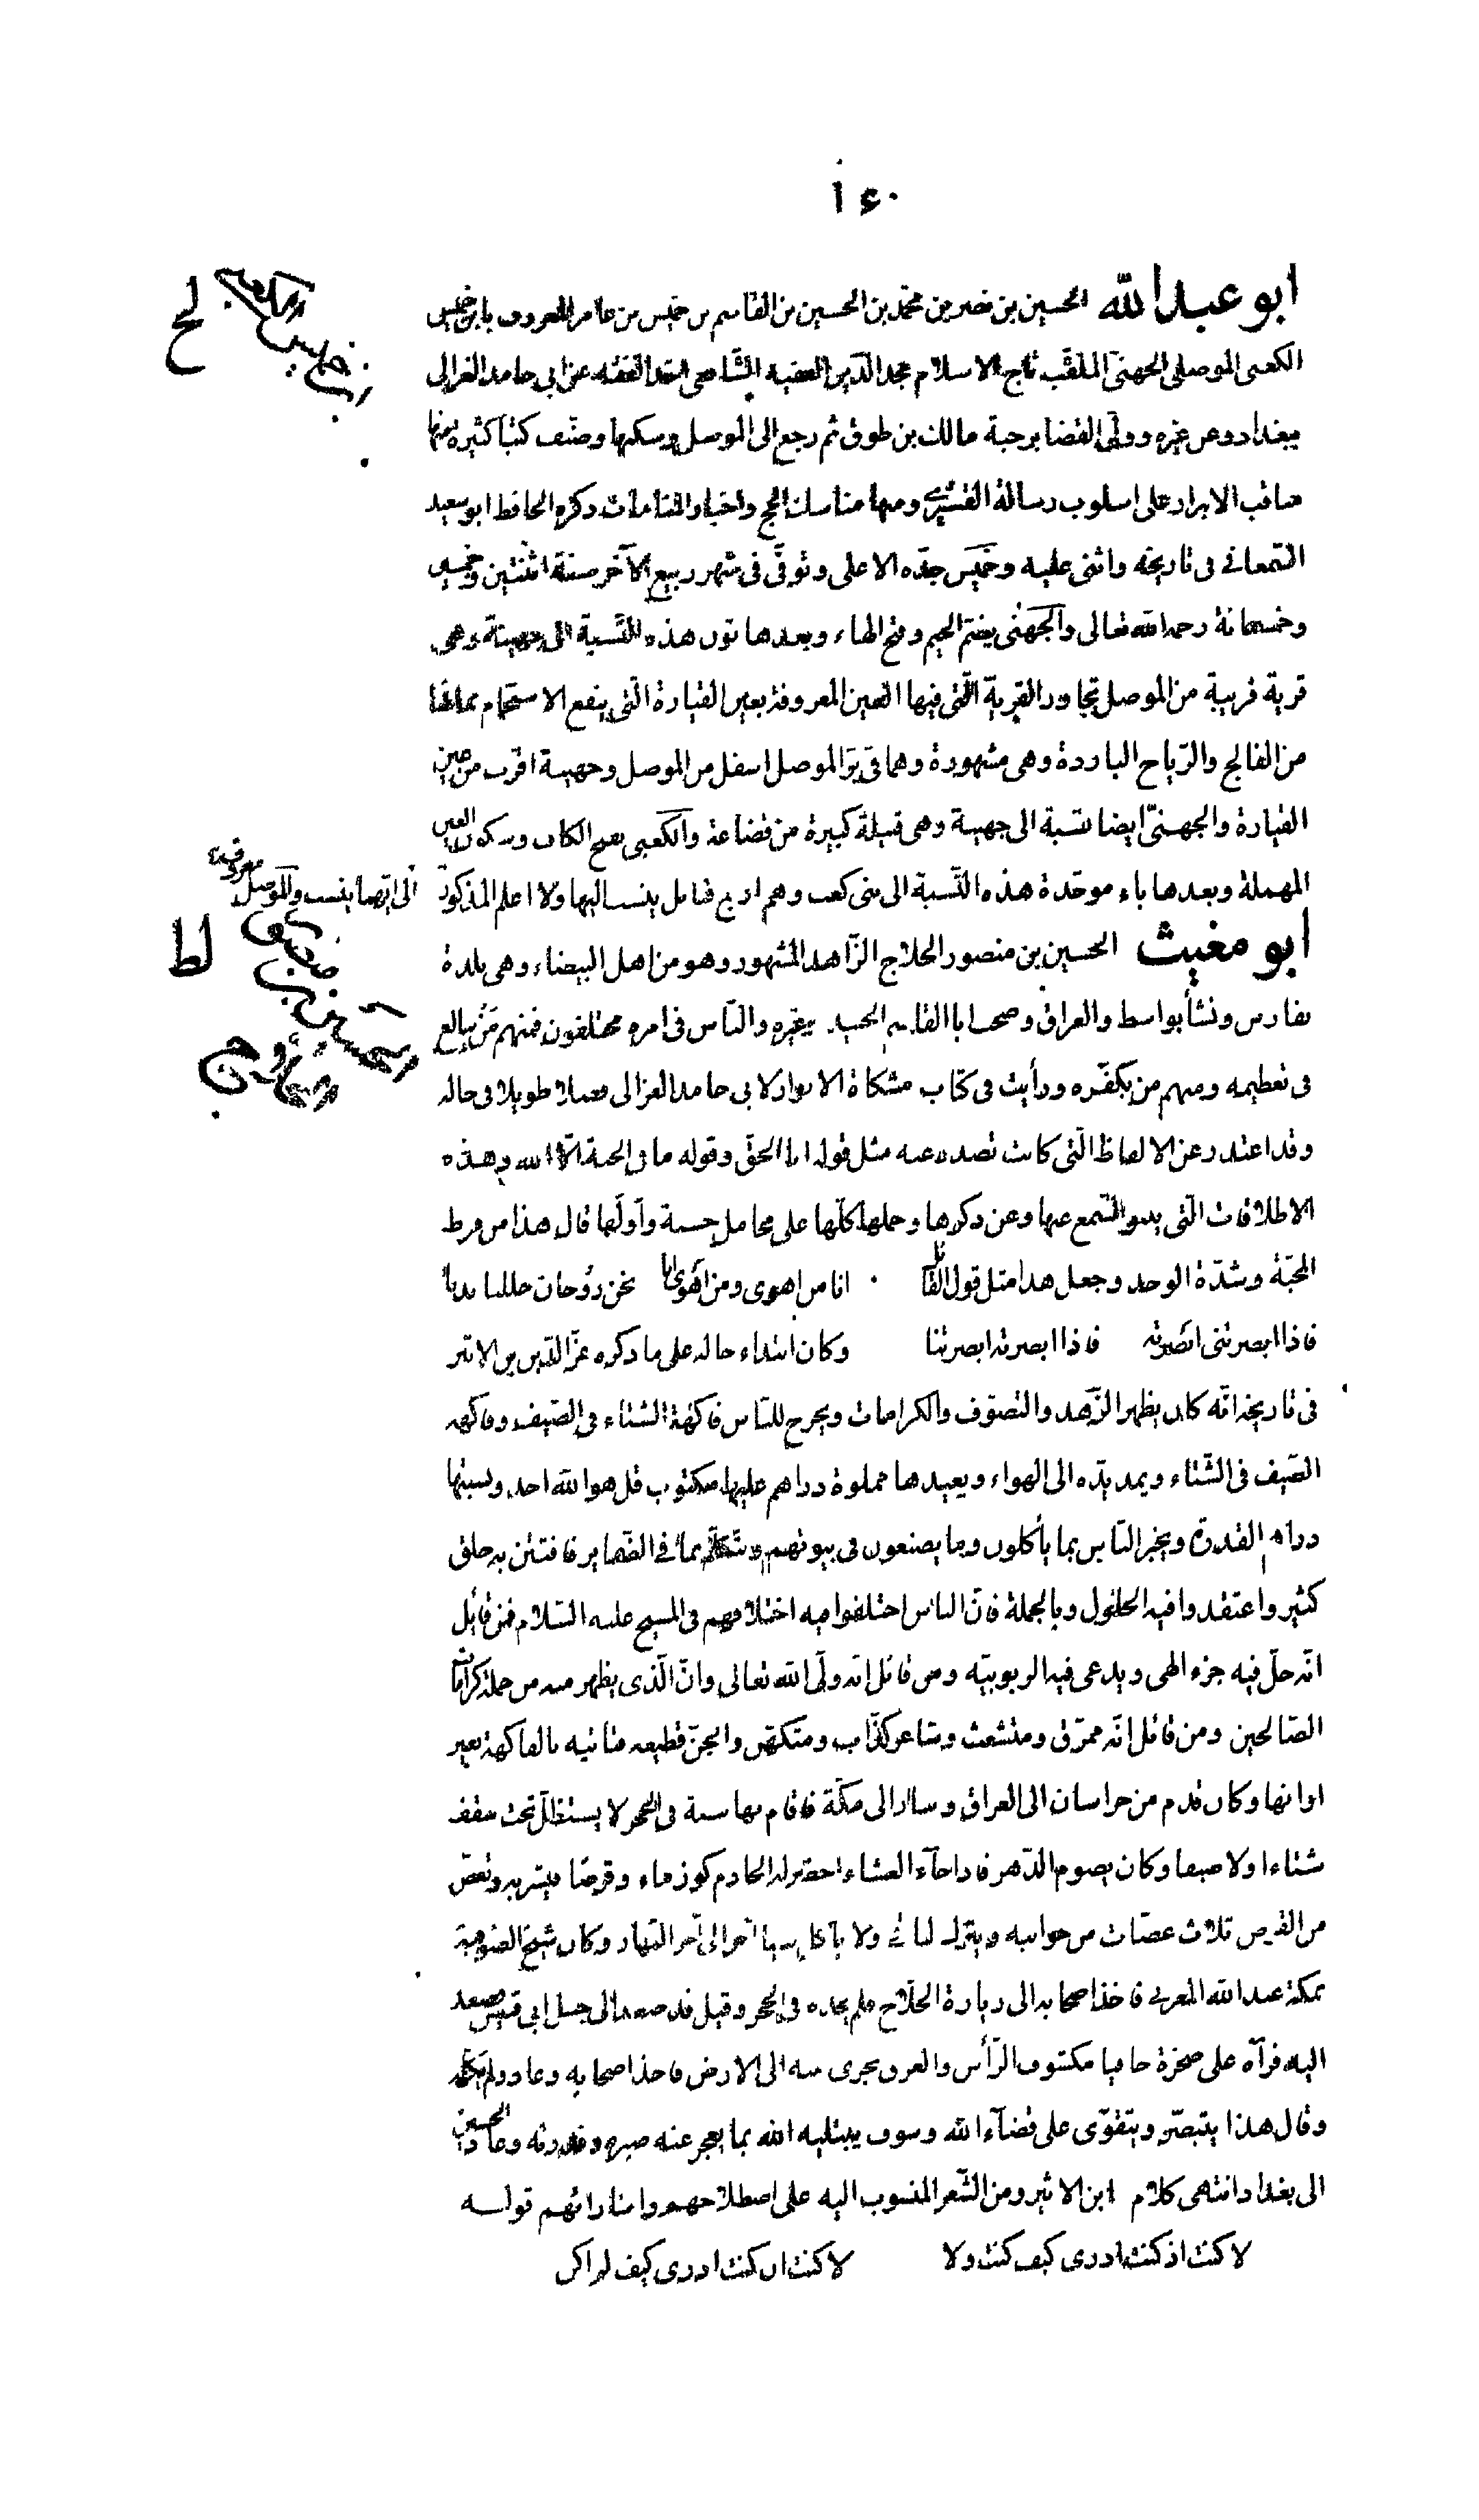 ١٤٠
ابو عبد الله الحسين بن نصر بن محمد بن الحسين بن القاسم بن خميس بن عامر المعروف بابن خميس
الكعبى الموصلى الجهنى الملقب تاج الاسلام مجد الدين الفقيه الشافعى اخذ الفقه عن ابى حامد الغزالى
ببغداد وعن غيره وولى القضا برحبة مالك بن طوق ثم رجع الى الموصل وسكنها وصنف كتبا كثيرة منها
مناقب الابرار على اسلوب رسالة القشيرى ومنها مناسك الحج واخبار المنامات ذكره الحافظ ابو سعيد
السمعانى فى تاريخه واثنى عليه وخميس جده الاعلى وتوفى فى شهر ربيع الآخر سنة اثنتين وخمسين
وخمسمائة رحمه الله تعالى والجهنى بضم الجيم وفتح الهاء وبعدها نون هذه النسبة الى جهينة وهى
قرية قريبة من الموصل تجاور القرية التى فيها العين المعروفة بعين القيارة التى ينفع الاستحمام بمائها
من الفالج والرياح الباردة وهى مشهورة وهما فى بر الموصل اسفل من الموصل وجهينة اقرب من عين
القيارة والجهنى ايضا نسبة الى جهينة وهى قبيلة كبيرة من قضاعة والكعبى بفتح الكاف وسكون العين
المهملة وبعدها باء موحدة هذه النسبة الى بنى كعب وهم اربع قبائل ينسب اليها ولا اعلم المذكور الى ايها ينسب والموصل معروفة
ابو مغيث الحسين بن منصور الحلاج الزاهد المشهور وهو من اهل البيضاء وهى بلدة
بفارس ونشأ بواسط والعراق وصحب ابا القاسم الجنيد وغيره والناس فى امره مختلفون فمنهم من يبالغ
فى تعظيمه ومنهم من يكفره ورأيت فى كتاب مشكاة الانوار لابى حامد الغزالى فصلا طويلا فى حاله
وقد اعتذر عن الالفاظ التى كانت تصدر عنه مثل قوله انا الحق وقوله ما فى الجبة الا الله وهذه
الاطلاقات التى ينبو السمع عنها وعن ذكرها وحملها كلها على محامل حسنة وأولها قال هذا من فرط
المحبة وشدة الوجد وجعل هذا مثل قول القائل انا من اهوى ومن اهوى انا نحن روحان حللنا بدنا
فاذا ابصرتنى ابصرته فاذا ابصرته ابصرتنا وكان ابتداء حاله على ما ذكره عز الدين بن الاثير
فى تاريخه انه كان يظهر الزهد والتصوف والكرامات ويخرج للناس فاكهة الشتاء فى الصيف وفاكهة
الصيف فى الشتاء ويمد يده الى الهواء ويعيدها مملوة دراهم عليها مكتوب قل هو الله احد ويسميها
دراهم القدرة ويخبر الناس بما يأكلون وما يصنعون فى بيوتهم ويتكلم بما فى الضمائر فافتتن به خلق
كثير واعتقدوا فيه الحلول وبالجملة فان الناس اختلفوا فيه اختلافهم فى المسيح عليه السلام فمن قائل
انه حل فيه جزء الهى ويدعى فيه الربوبية ومن قائل انه ولى الله تعالى وان الذى يظهر منه من جملة كرامات
الصالحين ومن قائل انه ممخرق ومتشعث وشاعر كذاب ومتكهن والجن تطيعه فتأتيه بالفاكهة بغير
اوانها وكان قدم من خراسان الى العراق وسار الى مكة فاقام بها سنة فى الحجر لا يستظل تحت سقف
شتاءا ولا صيفا وكان يصوم الدهر فاذا جآء العشاء احضر له الخادم كوز ماء وقرصا فيشربه ويعض
من القرص ثلاث عضات من جوانبه ويترك الباقى ولا يأكل شيئا آخر الى آخر النهار وكان شيخ الصوفية
بمكة عبد الله المغربى فاخذ اصحابه الى زيارة الحلاج فلم يجده فى الحجر وقيل قد صعد الى جبل ابى قبيس فصعد
اليه فرآه على صخرة حافيا مكشوف الرأس والعرق يجرى منه الى الارض فاخذ اصحابه وعاد ولم يكلمه
وقال هذا يتصبر ويتقوى على قضآء الله وسوف يبتليه الله بما يعجز عنه صبره وقدرته وعاد الحسين
الى بغداد انتهى كلام ابن الاثير ومن الشعر المنسوب اليه على اصطلاحهم واشاراتهم قوله
لا كنت اذ كنت ادرى كيف كنت ولا لا كنت ان كنت ادرى كيف لم اكن
ابن خميس الكعبى
لح
الحسين بن منصور الحلاج
لط